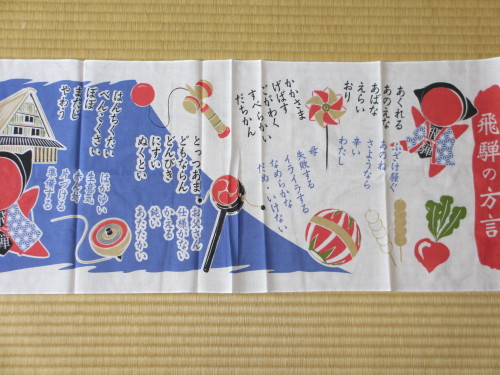 飛騨の方言
あぐれる
あのえな
あばな
えらい
おり
ふざけ騒ぐ
あのね
さようなら
辛い
わたし
かかさま
げばす
ごがわく
すべらかい
だちかん
母
失敗する
イライラする
なめらかな
だめ・いけない
とっつあま
どもならん
どんびき
にすい
ぬくとい
お父さん
仕様がない
かえる
鈍い
あたたかい
はんちくたい
ぼぼ
またじ
やわう
はがゆい
生意気
赤ん坊
片づける
準備する
飛騨
飛騨